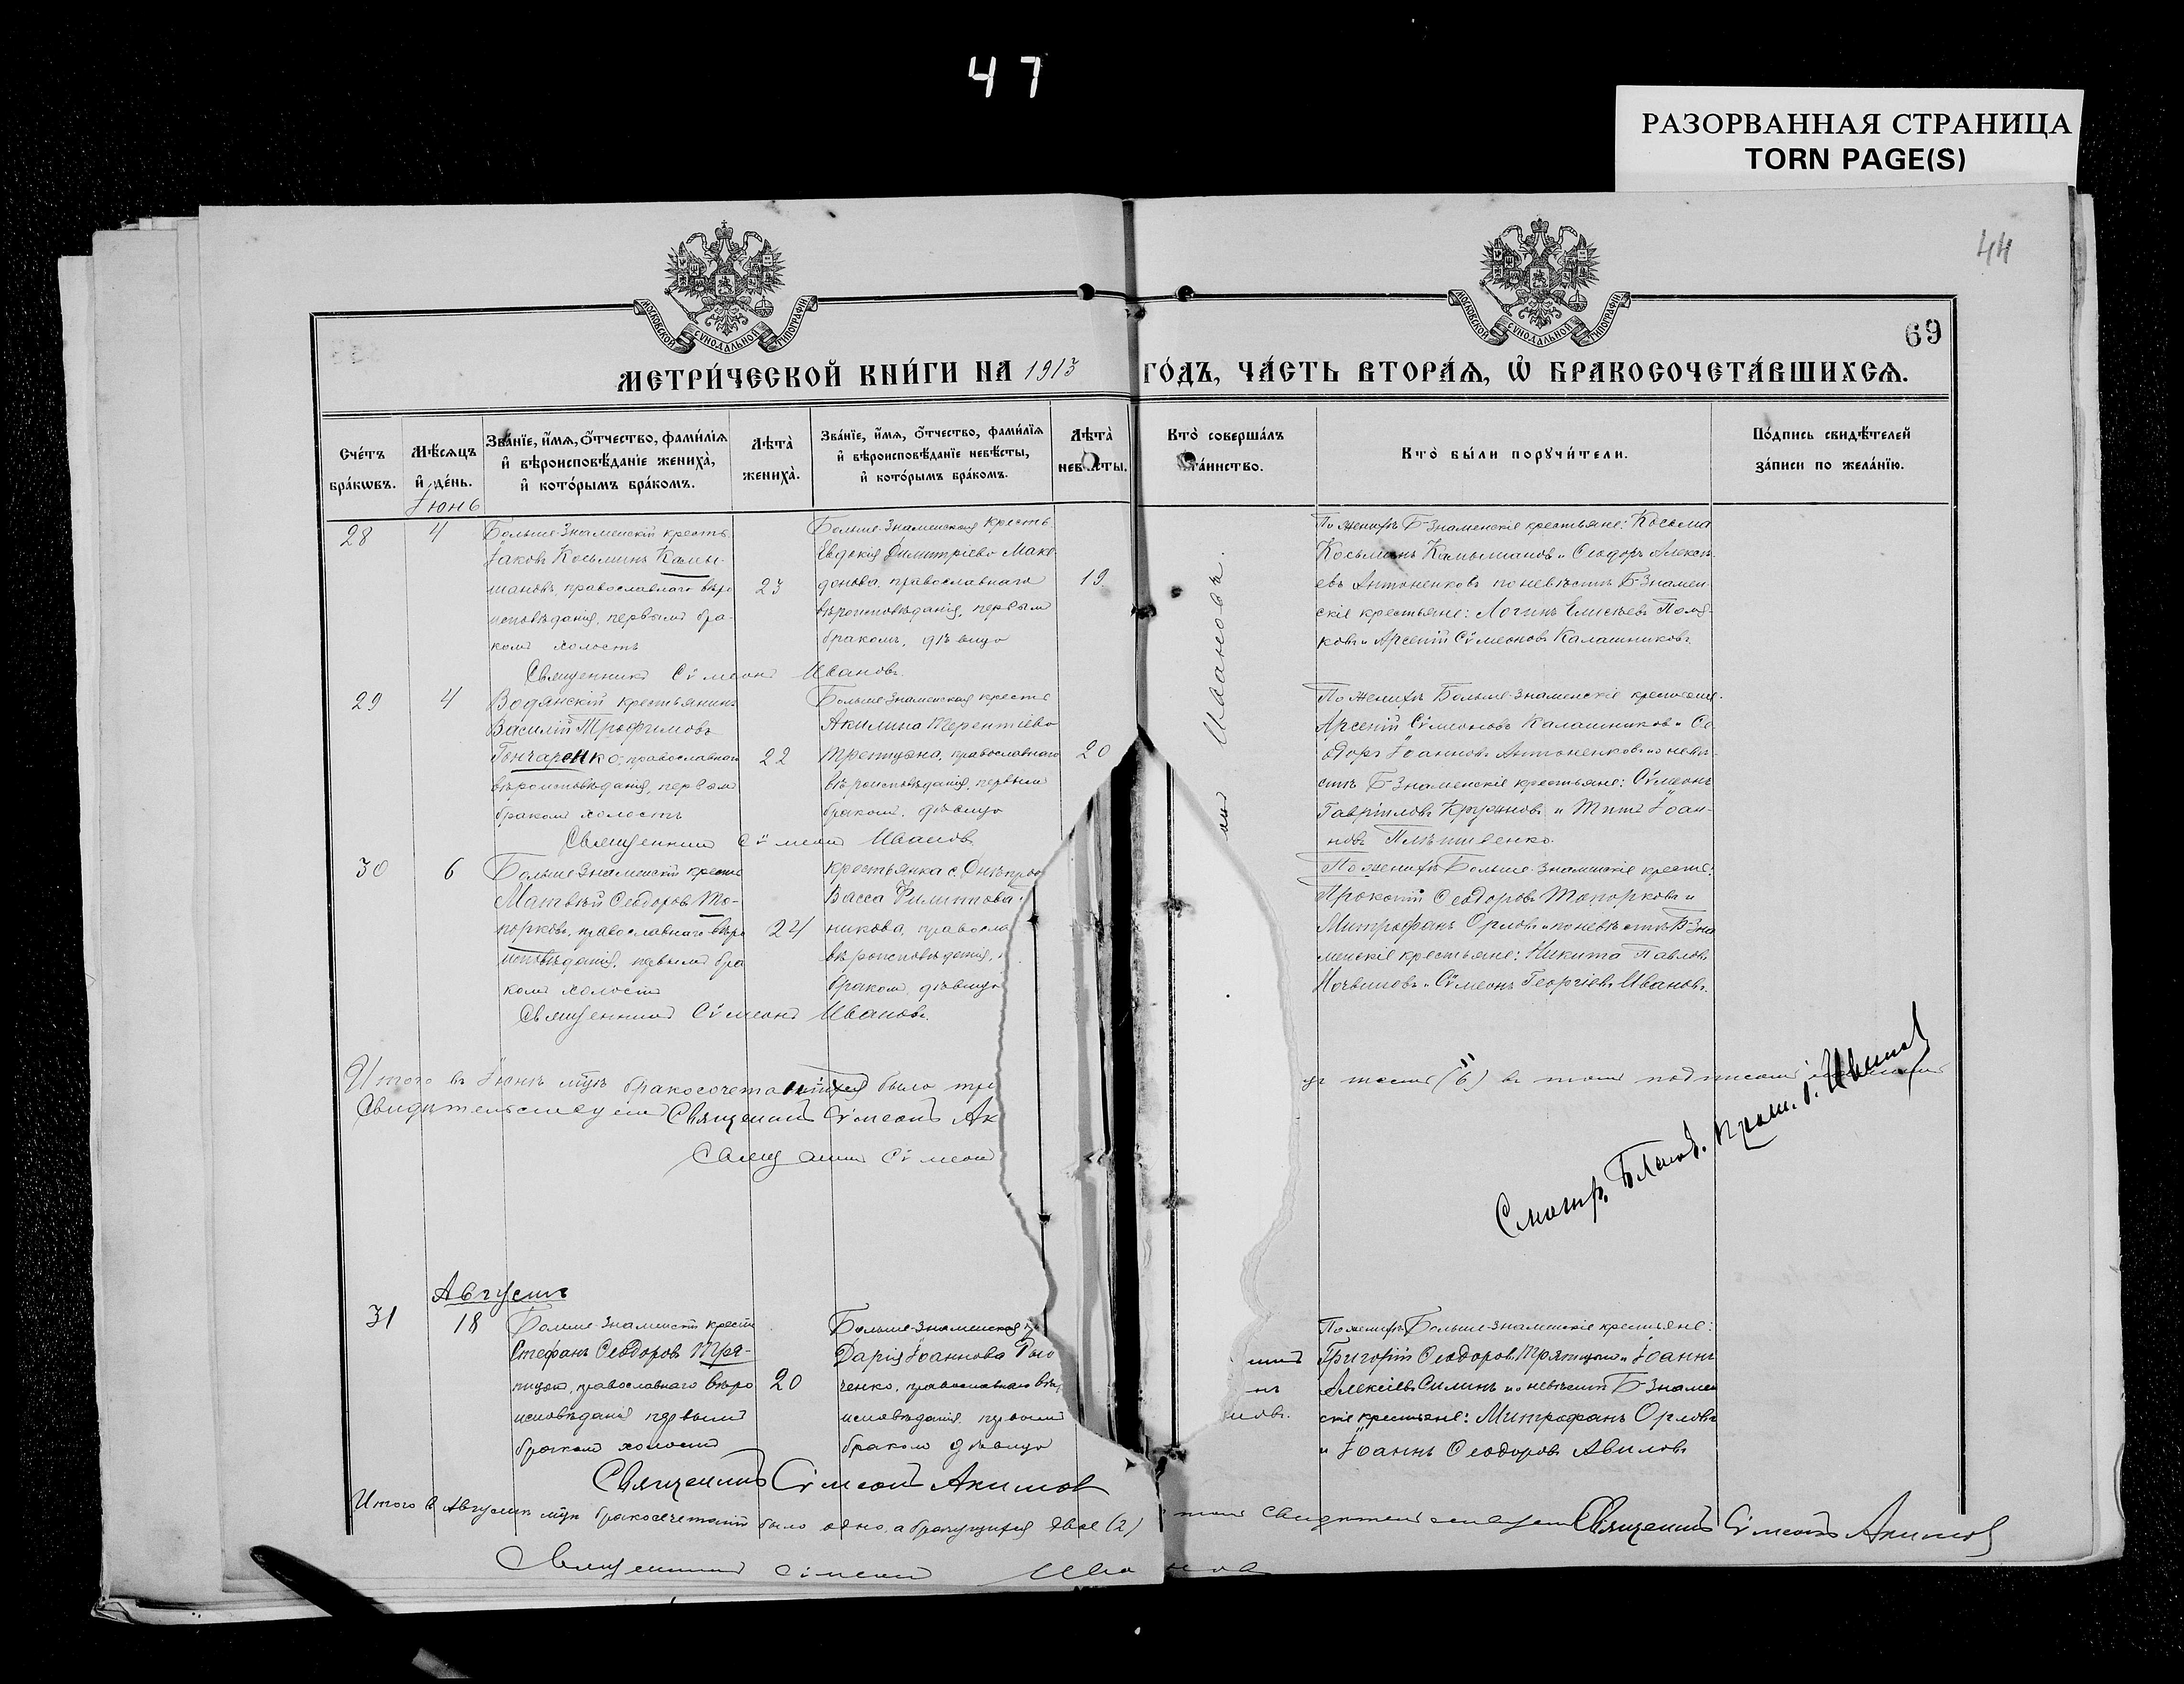 47
РАЗОРВАННАЯ СТРАНИЦА
TORN PAGE(S)
44
69
МОСКОВСКОЙ СѴНОДАЛЬНОЙ ТИПОГРАФІИ
МОСКОВСКОЙ СѴНОДАЛЬНОЙ ТИПОГРАФІИ
МЕТРИ́ЧЕСКОЙ КНИ́ГИ НА 1913 ГО́ДЪ, ЧА́СТЬ ВТОРА́Ѧ, Ѡ҆ БРАКОСОЧЕТА́ВШИХСѦ.
Сче́тъ бра́кѡвъ.
Мѣ́сѧцъ и҆ де́нь.
Зва́нїе, и҆́мѧ, ѻ҆́тчество, фами́лїѧ и҆ вѣроисповѣ́данїе жениха̀, и҆ кото́рымъ бра́комъ.
Лѣта̀ жениха̀.
Зва́нїе, и҆́мѧ, ѻ҆́тчество, фами́лїѧ и҆ вѣроисповѣ́данїе невѣ́сты, и҆ кото́рымъ бра́комъ.
Лѣта̀ нев сты.
Кто̀ соверша́лъ та́инство.
Кто̀ бы́ли порꙋчи́тели.
По́дпись свидѣ́телей за́писи по жела́нїю.
Іюнь
28
4
Больше-Знаменскій крестъ.
Іаковъ Косьминъ Камы-
шановъ, православнаго вѣро
исповѣданія, первымъ бра-
комъ холостъ
23
Больше-Знаменская кресть
Евдокія Димитріева Маке-
донова, православнаго
вѣроисповѣданія, первымъ
бракомъ, дѣвица
19
По женихѣ Б-Знаменскіе крестьяне: Косьма
Косьминъ Камышановъ и Ѳеодоръ Алексѣ-
евъ Антоненковъ по невѣстѣ Б-Знамен
скіе крестьяне: Логинъ Елисѣевъ Поля-
ковъ и Арсеній Сѵмеоновъ Калашниковъ.
Священникъ Сѵмеонъ Ивановъ.
Ивановъ.
29
4
Водянскій крестьянинъ
Василій Трофимовъ
Гончаренко, православнаго
вѣроисповѣданія, первымъ
бракомъ холостъ
22
Больше-Знаменская кресть
Акилина Терентіева
православнаго
вѣроисповѣданія, первымъ
бракомъ, дѣвица
20
По женихѣ Больше-Знаменскіе крестьяне:
Арсеній Сѵмеоновъ Калашниковъ и Ѳе-
одоръ Іоанновъ Антоненковъ по невѣ-
стѣ Б-Знаменскіе крестьяне: Сѵмеонъ
Гавріиловъ Кружновъ и Титъ Іоан-
новъ
Священникъ Сѵмеонъ Ивановъ
30
6
Больше Знаменскій кресть
Матвѣй Ѳеодоровъ То-
порковъ, православнаго вѣро
исповѣданія, первымъ бра
комъ холостъ
24
крестьянка с. Днѣпро
Васса Филиппова
никова, правосла
вѣроисповѣданія,
бракомъ, дѣвица
По женихѣ Больше-Знаменскіе кресть:
Прокопій Ѳеодоровъ Топорковъ и
Митрофанъ Орловъ и по невѣстѣ Б-Зна
менскіе крестьяне: Никита Павловъ
и Сѵмеонъ Георгіевъ Ивановъ.
Священникъ Сѵмеонъ Ивановъ.
Итого въ Іюнѣ мцѣ бракосочетавшихся было три
(6) въ томъ подписомъ
Свидѣтельствуемъ Священникъ Сѵмеонъ Ак
Священникъ Сѵмеонъ
Смотр. Благоч. Прот. І.
Августъ
31
18
Больше-Знаменскій кресть
Стефанъ Ѳеодоровъ Тря-
пицынъ, православнаго вѣро
исповѣданія первымъ
бракомъ холостъ
20
Больше-Знаменская кр
Дарія Іоаннова
ченко, православнаго вѣр
исповѣданія, первымъ
бракомъ дѣвица
По женихѣ Больше-Знаменскіе крестьяне:
Григорій Ѳеодоровъ Тряпицынъ и Іоаннъ
Алексіевъ Силинъ и по невѣстѣ Б-Знамен
скіе крестьяне: Митрофанъ Орловъ
и Іоаннъ Ѳеодоровъ Авиловъ
Священникъ Сѵмеонъ Акимовъ
Итого въ Августѣ мцѣ бракосочетаній было одно, а брачущихся двое (2) томъ свидѣтельствуемъ Священникъ Сѵмеонъ Акимовъ
Священникъ Сѵмеонъ Ивановъ